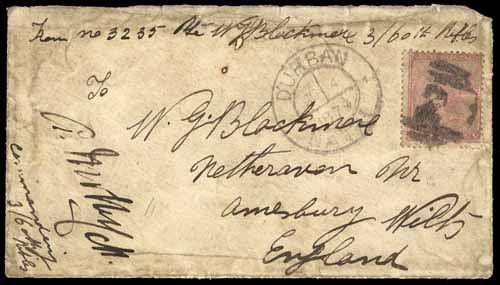 From no 3235 Pte W G Blackmore 3/60th Rifles
DURBAN
To
W. G Blackmore
Netheravon Nr
Amesbury Wilts
England
commanding
3/60 Rifles